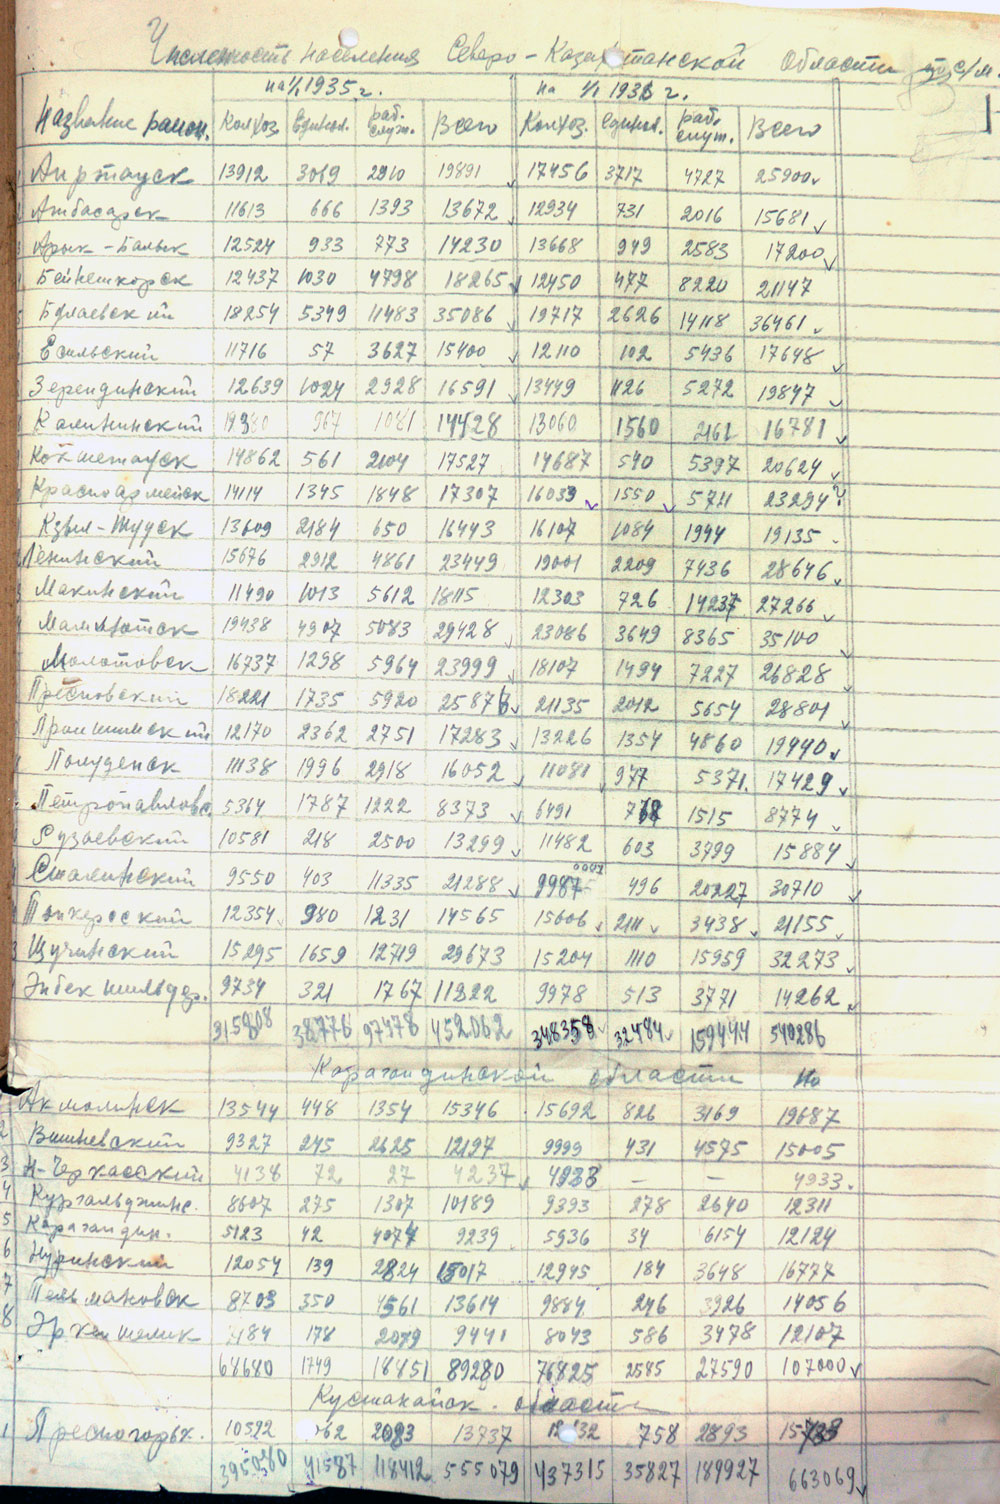 Численность населения Северо-Казахстанской области
на 1/1 1935 г. на 1/1 1936 г.
Название район. Колхоз. Единол. раб. служ. Всего Колхоз. Единол. раб. служ. Всего
Айртауск 13912 3069 2910 19891 17456 3717 4727 25900
Атбасарск 11613 666 1393 13672 12934 731 2016 15681
Арык-Балык 12524 933 773 14230 13668 949 2583 17200
Бейнеткорск 12437 1030 4798 18265 12450 477 8220 21147
Булаевский 18254 5349 11483 35086 19717 2626 14118 36461
Есильский 11716 57 3627 15400 12110 102 5436 17648
Зерендинский 12639 1024 2928 16591 13449 1126 5272 19847
Калининский 967 1081 14428 13060 1560 2161 16781
Кокшетауск 14862 561 2104 17527 14687 540 5397 20624
Красноармейск 14114 1345 1848 17307 16033 1550 5711 23294?
Кзыл-Тууск 13609 2184 650 16443 16107 1084 1944 19135
Ленинский 15676 2912 4861 23449 19001 2209 7436 28646
Макинский 11490 1013 5612 18115 12303 726 14237 27266
Мамлютск 19438 4907 5083 29428 23086 3649 8365 35100
Молотовск 16737 1298 5964 23999 18107 1494 7227 26828
Пресновский 18221 1735 5920 25876 21135 2012 5654 28801
Приишимский 12170 2362 2751 17283 13226 1354 4860 19440
Полуденск 11138 1996 2918 16052 11081 977 5371 17429
Петропавловс. 5364 1787 1222 8373 6491 768 1515 8774
Рузаевский 10581 218 2500 13299 11482 603 3799 15884
Сталинский 9550 403 11335 21288 9987 496 20227 30710
Тонкеросский 12354 980 1231 14565 15606 2111 3438 21155
Щучинский 15295 1659 12719 29673 15204 1110 15959 32273
Энбекшильдер. 9734 321 1767 11822 9978 513 3771 14262
315808 38776 97478 452062 348358 32484 159444 540286
Карагандинской области
1 Акмолинск 13544 448 1354 15346 15692 826 3169 19687
2 Вишневский 9327 245 2625 12197 9999 431 4575 15005
3 Н-Черкасский 4138 72 27 4237 4933 — — 4933
4 Кургальджинс. 8607 275 1307 10189 9393 278 2640 12311
5 Карагандин. 5123 42 4074 9239 5936 34 6154 12124
6 Нуринский 12054 139 2824 15017 12945 184 3648 16777
7 Тельмановск 8703 350 4561 13614 9884 246 3926 14056
8 Эркеншилик 184 178 2079 9441 8043 586 3478 12107
68680 1749 18851 89280 76825 2585 27590 107000
Кустанайск. области
1 Пресногорьк. 10592 2083 13737 758 2893
395080 41587 118412 555079 437315 35827 189927 663069